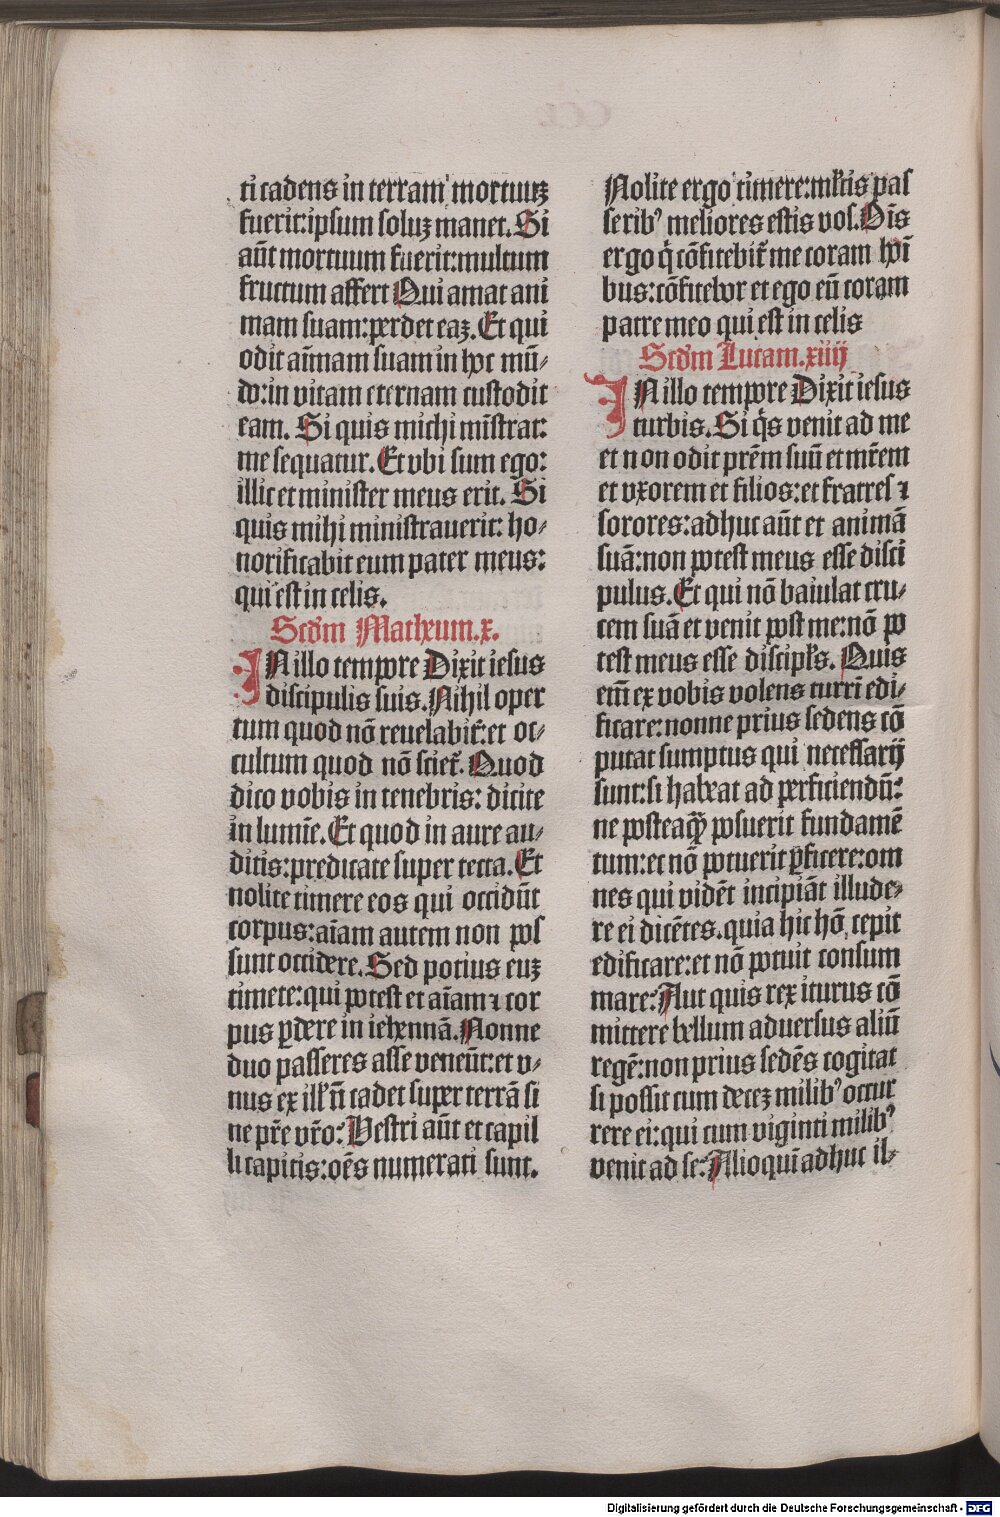 ti cadens in terram mortuuȝ
fuerit:ipsum soluȝ manet. Si
aūt mortuum fuerit:multum
fructum affert Qui amat ani
mam suam:perdet eaȝ. Et qui
odit aīmam suam in hoc mū-
do:in vitam eternam custodit
eam. Si quis michi mīstrat:
me sequatur. Et vbi sum ego:
illic et minister meus erit. Si
quis mihi ministrauerit: ho-
norificabit eum pater meus:
qui est in celis.
Scd'm Matheum.x.
IN illo tempore Dixit iesus
discipulis suis. Nihil oper
tum quod nō reuelabit᷑:et oc-
cultum quod nō sciet᷑. Quod
dico vobis in tenebris: dicite
in lumīe. Et quod in aure au-
ditis:predicate super tecta. Et
nolite timere eos qui occidūt
corpus:aīam autem non pos
sunt occidere. Sed potius euȝ
timete:qui potest et aīam ⁊ cor
pus ꝑdere in iehennā. Nonne
duo passeres asse veneūt:et v-
nus ex ill' n̄ cadet super terrā si
ne pr̄e vr̄o: Vestri aūt et capil
li capitis:oēs numerati sunt.
Nolite ergo timere:ml'tis pas
serib' meliores estis vos. Oīs
ergo q̇ cōfitebit᷑ me coram hoī
bus:cōfitebor et ego eū coram
patre meo qui est in celis
Scd'm Lucam.xiiij
IN illo tempore Dixit iesus
turbis. Si q̇s venit ad me
et non odit prēm suū et mr̄em
et vxorem et filios:et fratres ⁊
sorores:adhuc aūt et animā
suā:non potest meus esse disci
pulus. Et qui nō baiulat cru-
cem suā et venit post me:nō po
test meus esse discipl's. Quis
em̄ ex vobis volens turrī edi-
ficare:nonne prius sedens cō
putat sumptus qui necessarij
sunt:si habeat ad perficiendū:
ne posteaꝙ̄ posuerit fundamē
tum:et nō potuerit ꝑficere:om
nes qui vidēt incipiāt illude-
re ei dicētes.quia hic hō cepit
edificare:et nō potuit consum
mare: Aut quis rex iturus cō
mittere bellum aduersus aliū
regē:non prius sedēs cogitat
si possit cum deceȝ milib' occur
rere ei:qui cum viginti milib'
venit ad se: Alioquī adhuc il-
Digitalisierung gefördert durch die Deutsche Forschungsgemeinschaft - DFG